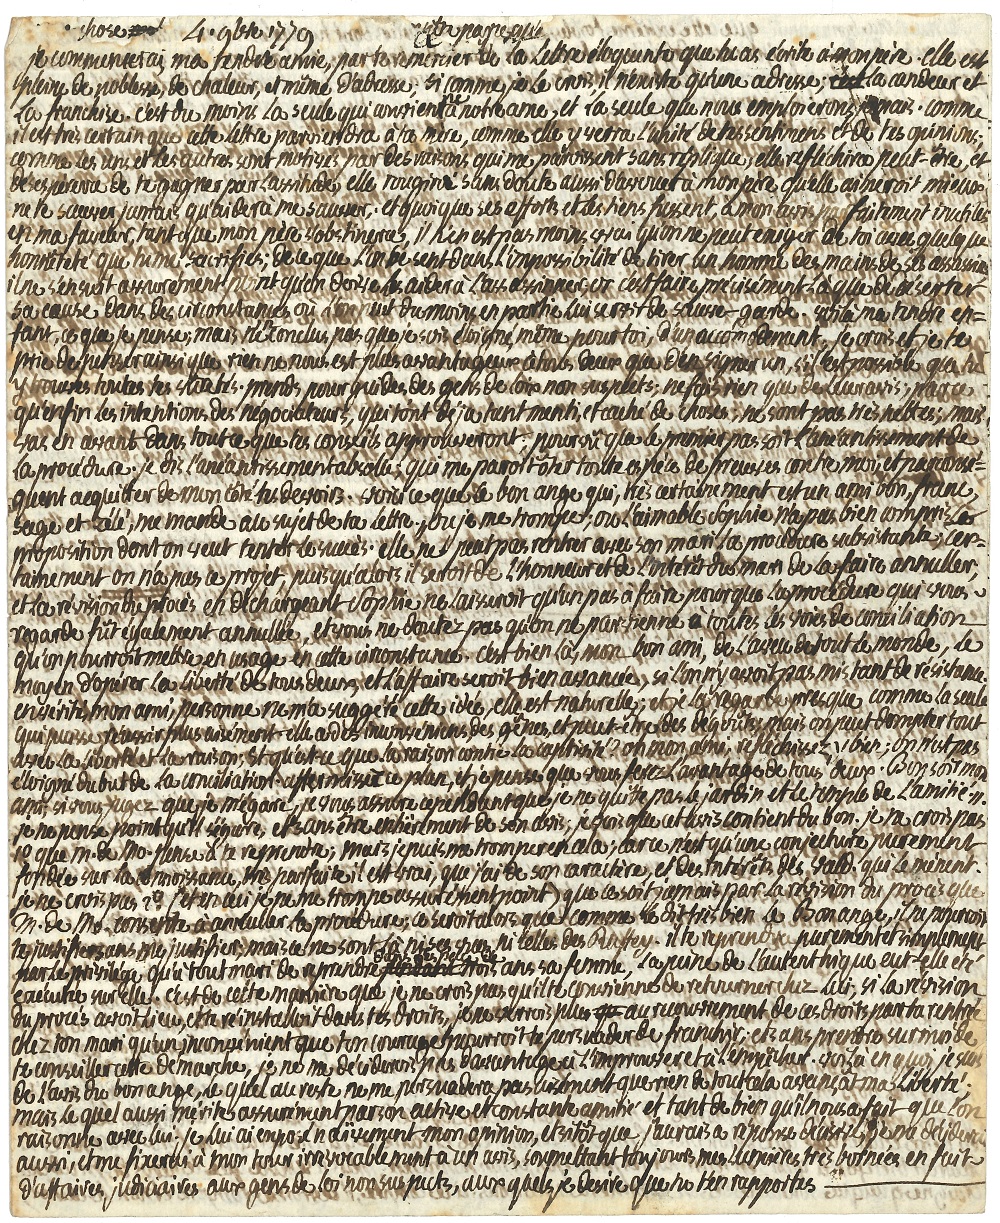 chose 4. 9bre 1779 notre pare que
je commencerai, ma tendre amie, par te remercier de la Lettre éloquente que tu as écrite à mon père. elle est
pleine de noblesse, de chaleur, et même d'adresse; si comme je le crois, il n'existe qu'une adresse; la candeur et
La franchise. c'est du moins la seule qui convient à notre ame, et la seule que nous emploierons jamais. comme
il est très certain que cette lettre parviendra à ta mère, comme elle y verra l'unité de tes sentimens et de tes opinions,
comme les uns et les autres sont motivés par des raisons qui me paroissent sans réplique, elle réfléchira peut-être, et
désespérera de te gagner par lassitude, elle rougira sans doute aussi d'avouer à mon père qu'elle aimeroit mieux
ne te sauver jamais qu'aider à me sauver. et quoique ses efforts et les tiens fussent, à mon avis parfaitement inutiles
en ma faveur, tant que mon père s'obstinera, il n'en est pas moins vrai qu'on ne peut exiger de toi avec quelque
honnêteté que tu me sacrifies; de ce que l'on se sent dans l'impossibilité de tirer un homme des mains de ses assassins
il ne s'ensuit assurement point qu'on doive les aider à l'assassiner; et c'est faire précisement là que de déserter
sa cause dans des circonstances où l'on peut du moins en partie lui servir de sauve-garde. voilà ma tendre en-
fant, ce que je pense; mais n'en conclus pas que je sois éloigné, même pour toi, d'un accomodement, je crois et je te
prie de penser ainsi que rien ne nous est plus avantageux à tous deux que d'en signer un, s'il est possible que tu
y trouves toutes tes sûretés. prends pour guides des gens de loix non suspects. ne fais rien que de leur avis; parce
qu'enfin les intentions des négociateurs, qui t'ont déjà tant menti, et caché de choses; ne sont pas très nettes; mais
vas en avant dans tout ce que tes conseils approuveront; pourvu que le premier pas soit l'anéantissement de
la procédure. je dis l'anéantissement absolu; qui me paroît ôter toute espèce de preuves contre moi, et par consé-
quent acquitter de mon côté tes devoirs. voici ce que le bon ange qui, très certainement est un ami bon, franc,
sage et zélé, me mande au sujet de ta lettre. ou je me trompe, ou l'aimable Sophie n'a pas bien compris la
proposition dont on veut tenter le succès. elle ne peut pas rentrer avec son mari la procédure subsistante; cer-
tainement on n'a pas ce projet, puisqu'alors il seroit de l'honneur et de l'intérêt du mari de la faire annuller,
et la révision du procès en déchargeant Sophie ne laisseroit qu'un pas à faire pour que la procédure qui vous
regarde fût également annullée, et vous ne doutez pas qu'on ne parvienne à toutes les voies de conciliation
qu'on pourroit mettre en usage en cette circonstance. c'est bien là, mon bon ami, de l'aveu de tout le monde, le
moyen d'opérer la liberté de tous deux, et l'affaire seroit bien avancée, si l'on n'y avoit pas mis tant de résistance
en vérité, mon ami, personne ne m'a suggéré cette idée, elle est naturelle; et je la regarde presque comme la seule
qui puisse réussir plus aisément elle a des inconvéniens des gênes, et peut-être des dégoûts; mais on peut dompter tout
avec la liberté et la raison, et qu'est ce que la raison contre la captivité? oh mon ami, réfléchissez y bien; on n'est pas
éloigné du but de la conciliation affermissez ce plan, et je pense que vous ferez l'avantage de tous deux. Bon soir mon
ami, si vous jugez que je m'égare, je vous assure cependant que je ne quitte pas le jardin et le temple de l'amitié.
je ne pense point qu'il s'égare, et sans être entièrement de son avis, je crois que cet avis contient du bon. je ne crois pas
1º que m. de Mo. pense à te reprendre; mais je puis me tromper en cela; car ce n'est qu'une conjecture purement
fondée sur la connoissance, très parfaite il est vrai, que j'ai de son caractère, et des intérêts des Vald. qui le mènent.
je ne crois pas 2º. (et en ceci je ne me trompe assurément point) que ce soit jamais par la révision du procès que
M. de Mo. consente à annuller la procédure; ce seroit alors que, comme le dit très bien le Bon ange, il ne pourroit
te justifier sans me justifier, mais ce ne sont là ni ses vues, ni celles des Ruffey. il te reprendra purement et simplement
par le privilége, qu'a tout mari de reprendre dans l'espace de trois ans sa femme, la peine de l'authentique eut-elle été
exécutée sur elle. c'est de cette manière que je ne crois pas qu'il te convienne de retourner chez lui, si la révision
du procès avoit lieu, et te réinstalloit dans tes droits, je ne verrois plus au recouvrement de ces droits par ta rentrée
chez ton mari qu'un inconvénient que ton courage pourroit te persuader de franchir; et sans prendre sur moi de
te conseiller cette démarche, je ne me déciderois pas davantage à l'improuver et à l'empêcher. voilà en quoi je suis
de l'avis du bon ange, lequel au reste ne me persuadera pas aisément que rien de tout cela avançât ma liberté.
mais lequel aussi mérite assurément par son active et constante amitié et tant de bien qu'il nous a fait que l'on
raisonne avec lui. je lui ai exposé naïvement mon opinion, et sitôt que j'aurai sa réponse décisive, je me déciderai
aussi, et me fixerai à mon tour irrévocablement à un avis, soumettant toujours mes lumières très bornées en fait
d'affaires judiciaires aux gens de loi non suspects, auxquels je désire que tu t'en rapportes